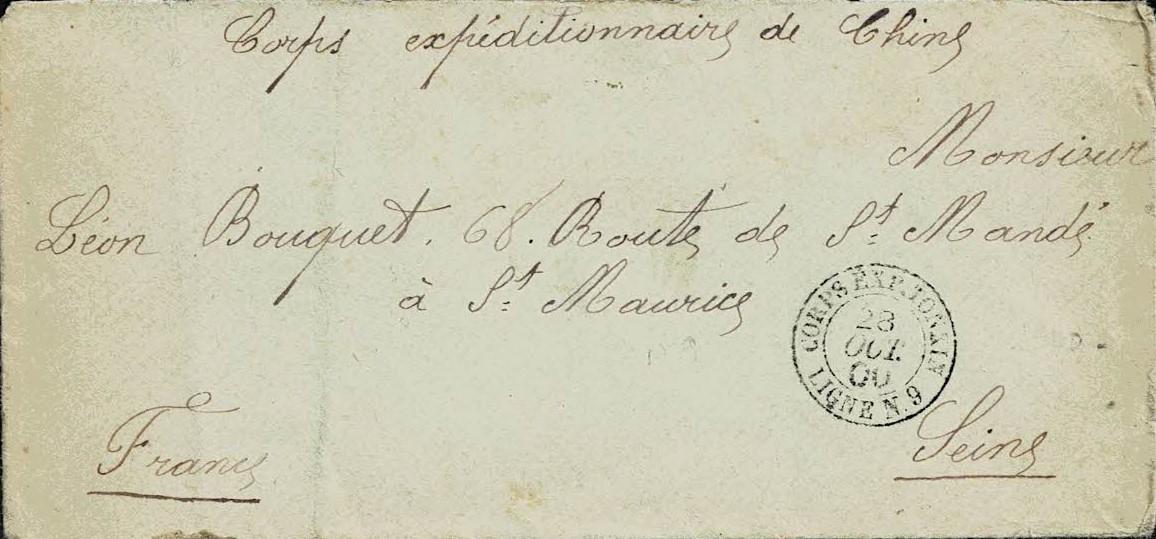 Corps expéditionnaire de Chine
Monsieur
Léon Bouquet. 68. Route de St. Mandé
à St. Maurice
CORPS EXP. TONKIN
28
OCT.
00
LIGNE N. 9
France
Seine